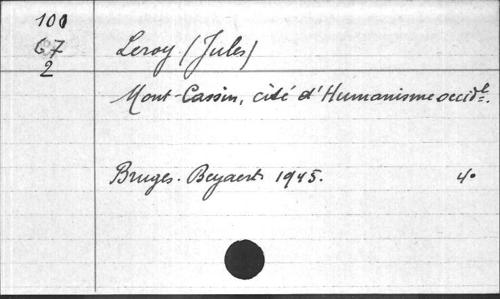 100
67
2
Leroy (Jules)
Mont-Cassin, cité d'Humanisme occidle.
Bruges. Beyaert 1945. 4°